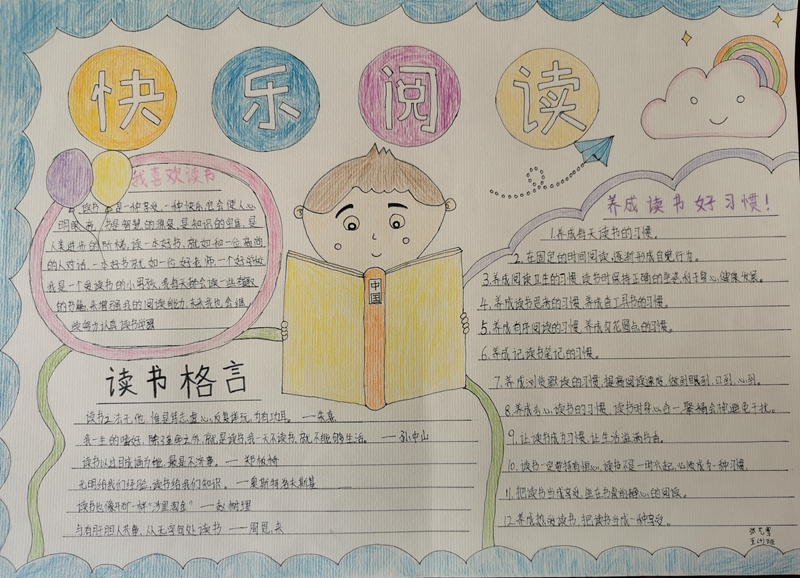 快乐阅读
我喜欢读书
读书是一种享受,一种快乐也会使人心
明眼亮,书是智慧的源泉,是知识的宝库,是
人类进步的阶梯,读一本好书,就如和一位高尚
的人对话,一本好书就如一位好老师,一个好学校
我是一个爱读书的小男孩,我每天都会读一些有趣
的书籍,来增强我的阅读能力,未来我也会继
续努力认真读书
中国
读书格言
读书之法无他,惟是笃志虚心,反复详玩,为有功耳。——朱熹
我一生的嗜好,除了革命之外,就是读书,我一天不读书,就不能够生活。——孙中山
读书以过目成诵为能,最是不济事。——郑板桥
光明给我们经验,读书给我们知识。——奥斯特洛夫斯基
读书也像开矿一样"沙里淘金"——赵树理
与有肝胆人共事,从无字句处读书——周恩来
养成读书好习惯!
1.养成每天读书的习惯。
2.在固定的时间阅读,逐渐形成自觉行为。
3.养成阅读卫生的习惯,读书时保持正确的坐姿,利于身心健康发展。
4.养成读书思考的习惯,养成查工具书的习惯。
5.养成有序阅读的习惯,养成勾花圈点的习惯。
6.养成记读书笔记的习惯。
7.养成浏览默读的习惯,提高阅读速度,做到眼到、口到、心到。
8.养成专心读书的习惯,读书时身心合一,聚精会神,避免干扰。
9.让读书成为习惯,让生活溢满书香。
10.读书一定要持有恒心,读书不是一时兴起,必须成为一种习惯。
11.把读书当成享受,坐在书桌前静心的阅读。
12.养成热爱读书,把读书当成一种享受。